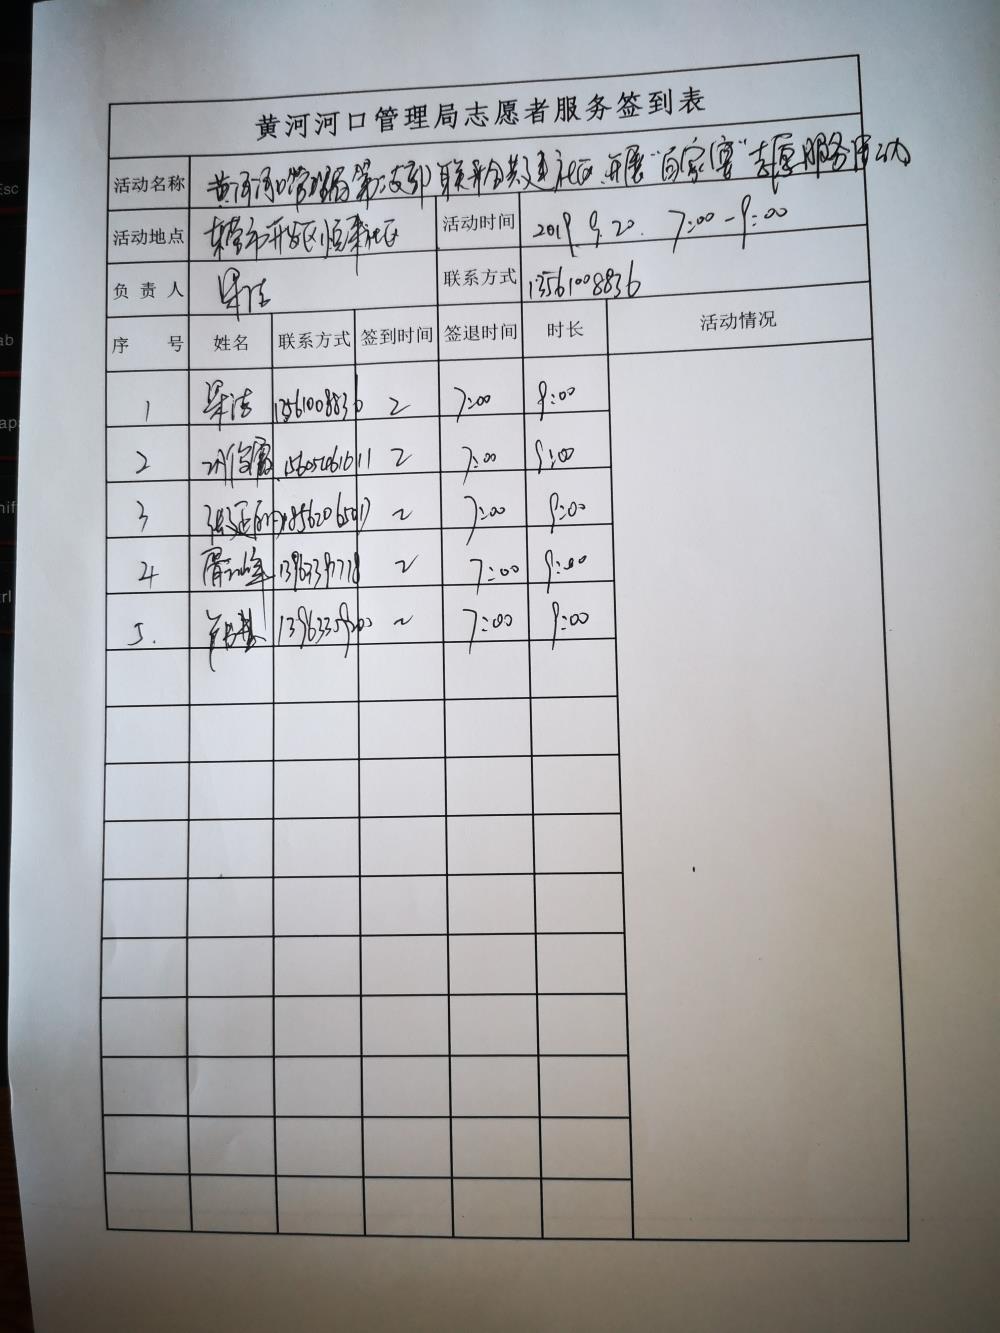 黄河河口管理局志愿者服务签到表
活动名称 黄河河口管理局第 支部联合共建社区开展"百家宴"志愿服务活动
活动地点 东营市开发区恒 社区 活动时间 2019.9.20. 7:00-9:00
负责人 梁洁 联系方式 13561008836
序号 姓名 联系方式 签到时间 签退时间 时长 活动情况
1 梁洁 13561008836 2 7:00 9:00
2 2 7:00 9:00
3 2 7:00 9:00
4 2 7:00 9:00
5. 2 7:00 9:00
Esc
ab
aps
hif
trl